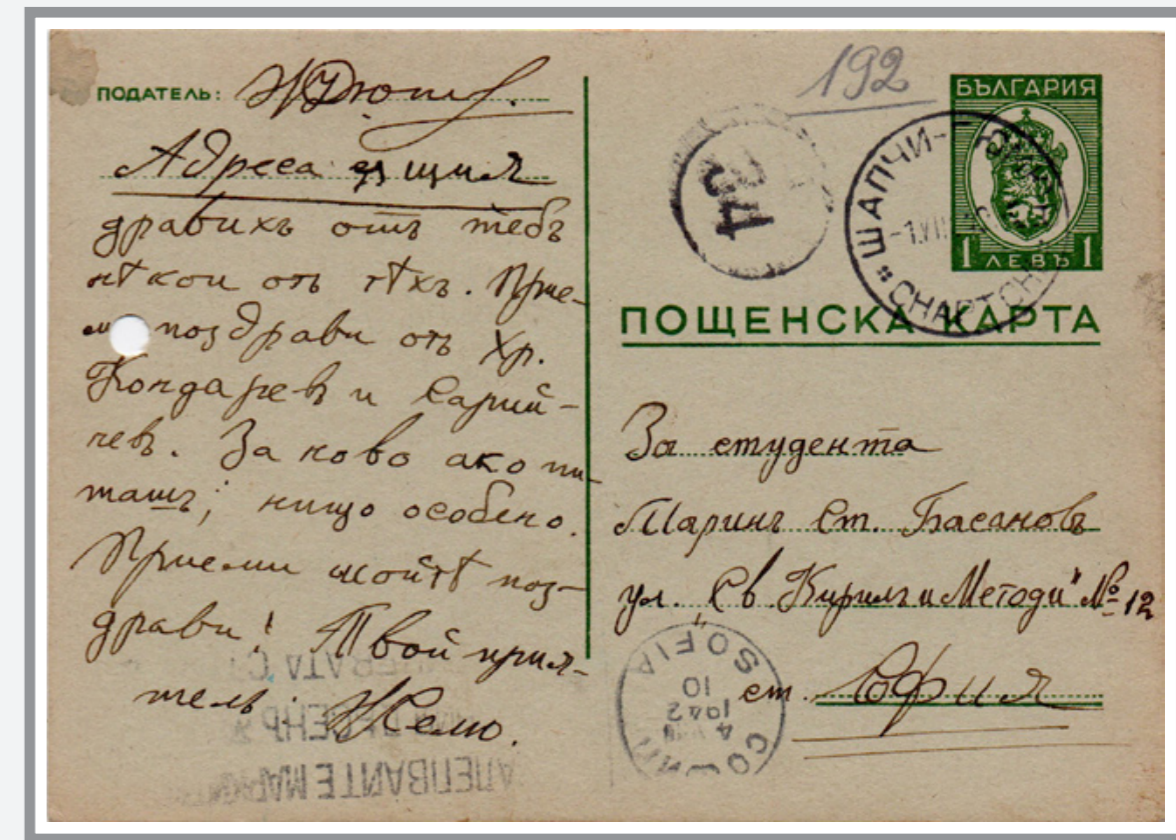 ПОДАТЕЛЬ:
Адреса
дравихъ отъ тебъ
нѣкои отъ тѣхъ. Прие-
ми поздрави отъ Хр.
Кондаревъ и Сарий-
чевъ. За ново ако пи-
ташъ; нищо особено.
Приеми моитѣ поз-
драви! Твой прия-
тель: Желю.
192
БЪЛГАРИЯ
1 ЛЕВЪ 1
34
ШАПЧИ
ПОЩЕНСКА КАРТА
За студента
Маринъ Ст. Басановъ
ул. "Св. Кирилъ и Методи" № 12
ст. София
SOFIA
10
1942
4